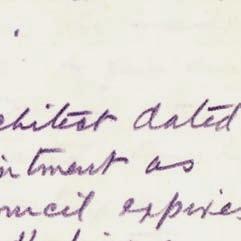 chitect dated
intment as
ouncil expires